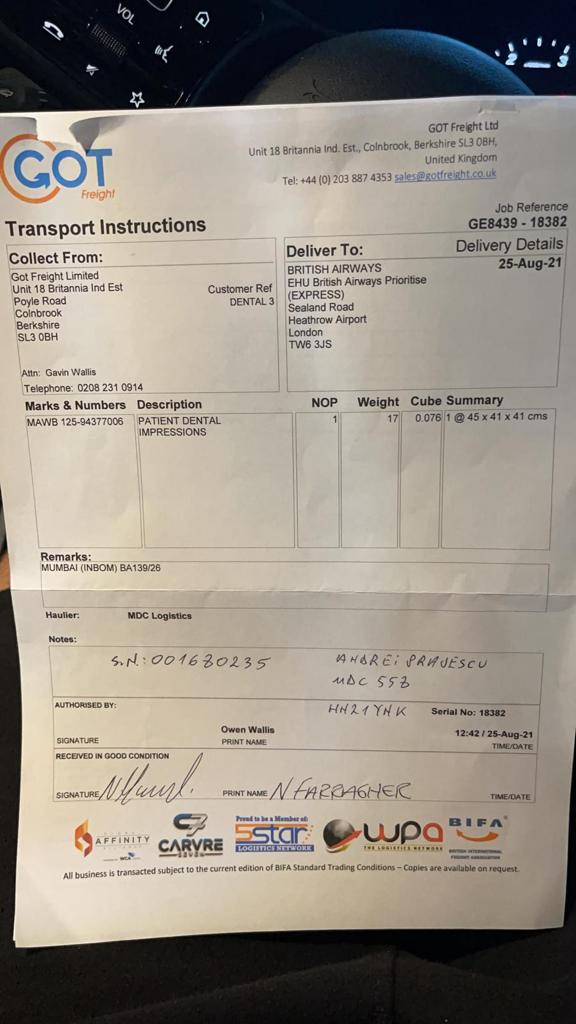 VOL
2
3
GOT
Freight
GOT Freight Ltd
Unit 18 Britannia Ind. Est., Colnbrook, Berkshire SL3 0BH,
United Kingdom
Tel: +44 (0) 203 887 4353 sales@gotfreight.co.uk
Job Reference
GE8439 - 18382
Transport Instructions
Delivery Details
25-Aug-21
Collect From:
Got Freight Limited
Unit 18 Britannia Ind Est
Poyle Road
Colnbrook
Berkshire
SL3 0BH
Customer Ref
DENTAL 3
Attn: Gavin Wallis
Telephone: 0208 231 0914
Deliver To:
BRITISH AIRWAYS
EHU British Airways Prioritise
(EXPRESS)
Sealand Road
Heathrow Airport
London
TW6 3JS
Marks & Numbers Description NOP Weight Cube Summary
MAWB 125-94377006 PATIENT DENTAL 1 17 0.076 1 @ 45 x 41 x 41 cms
IMPRESSIONS
Remarks:
MUMBAI (INBOM) BA139/26
Haulier: MDC Logistics
Notes:
S.N.: 001680235 ANDREI
MDC 558
HN21YNK
AUTHORISED BY:
Serial No: 18382
Owen Wallis 12:42 / 25-Aug-21
SIGNATURE PRINT NAME TIME/DATE
RECEIVED IN GOOD CONDITION
SIGNATURE PRINT NAME N FARRAGHER TIME/DATE
AFFINITY
WCA
CARVRE
SEVEN
Proud to be a Member of:
5star
LOGISTICS NETWORK
wpa
THE LOGISTICS NETWORK
BIFA
BRITISH INTERNATIONAL
FREIGHT ASSOCIATION
All business is transacted subject to the current edition of BIFA Standard Trading Conditions – Copies are available on request.